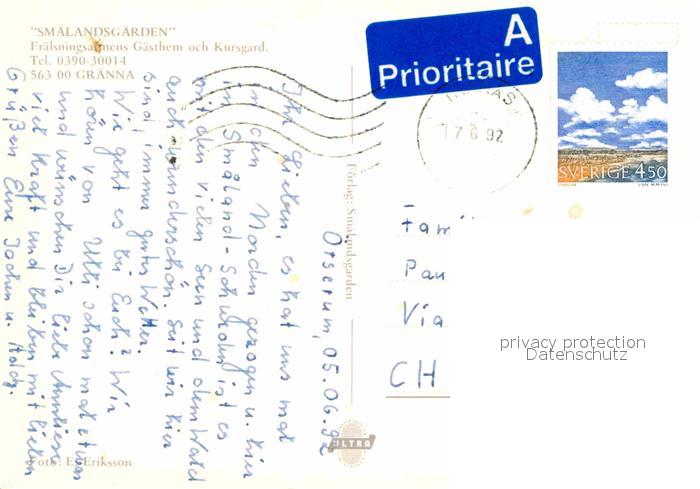 "SMÅLANDSGÅRDEN"
Frälsningsarmens Gästhem och Kursgard.
Tel. 0390-30014
563 00 GRÄNNA
A
Prioritaire
17 6 92
SVERIGE 4,50
Förlag: Smålandsgarden
Örserum, 05.06.92
Ihr Lieben, es hat uns mal
in den Norden gezogen u. hier
in Småland-Schweden ist es
mit den vielen Seen und dem Wald
auch wunderschön. Seit wir hier
sind, immer gutes Wetter.
Wie geht es bei Euch? Wir
hören von Ulli schon mal etwas
und wünschen Dir liebe
viel Kraft und bleiben mit lieben
Grüßen Eure Jochen u.
Fam
Pau
Via
CH
privacy protection
Datenschutz
ULTRA
Foto: E. Eriksson